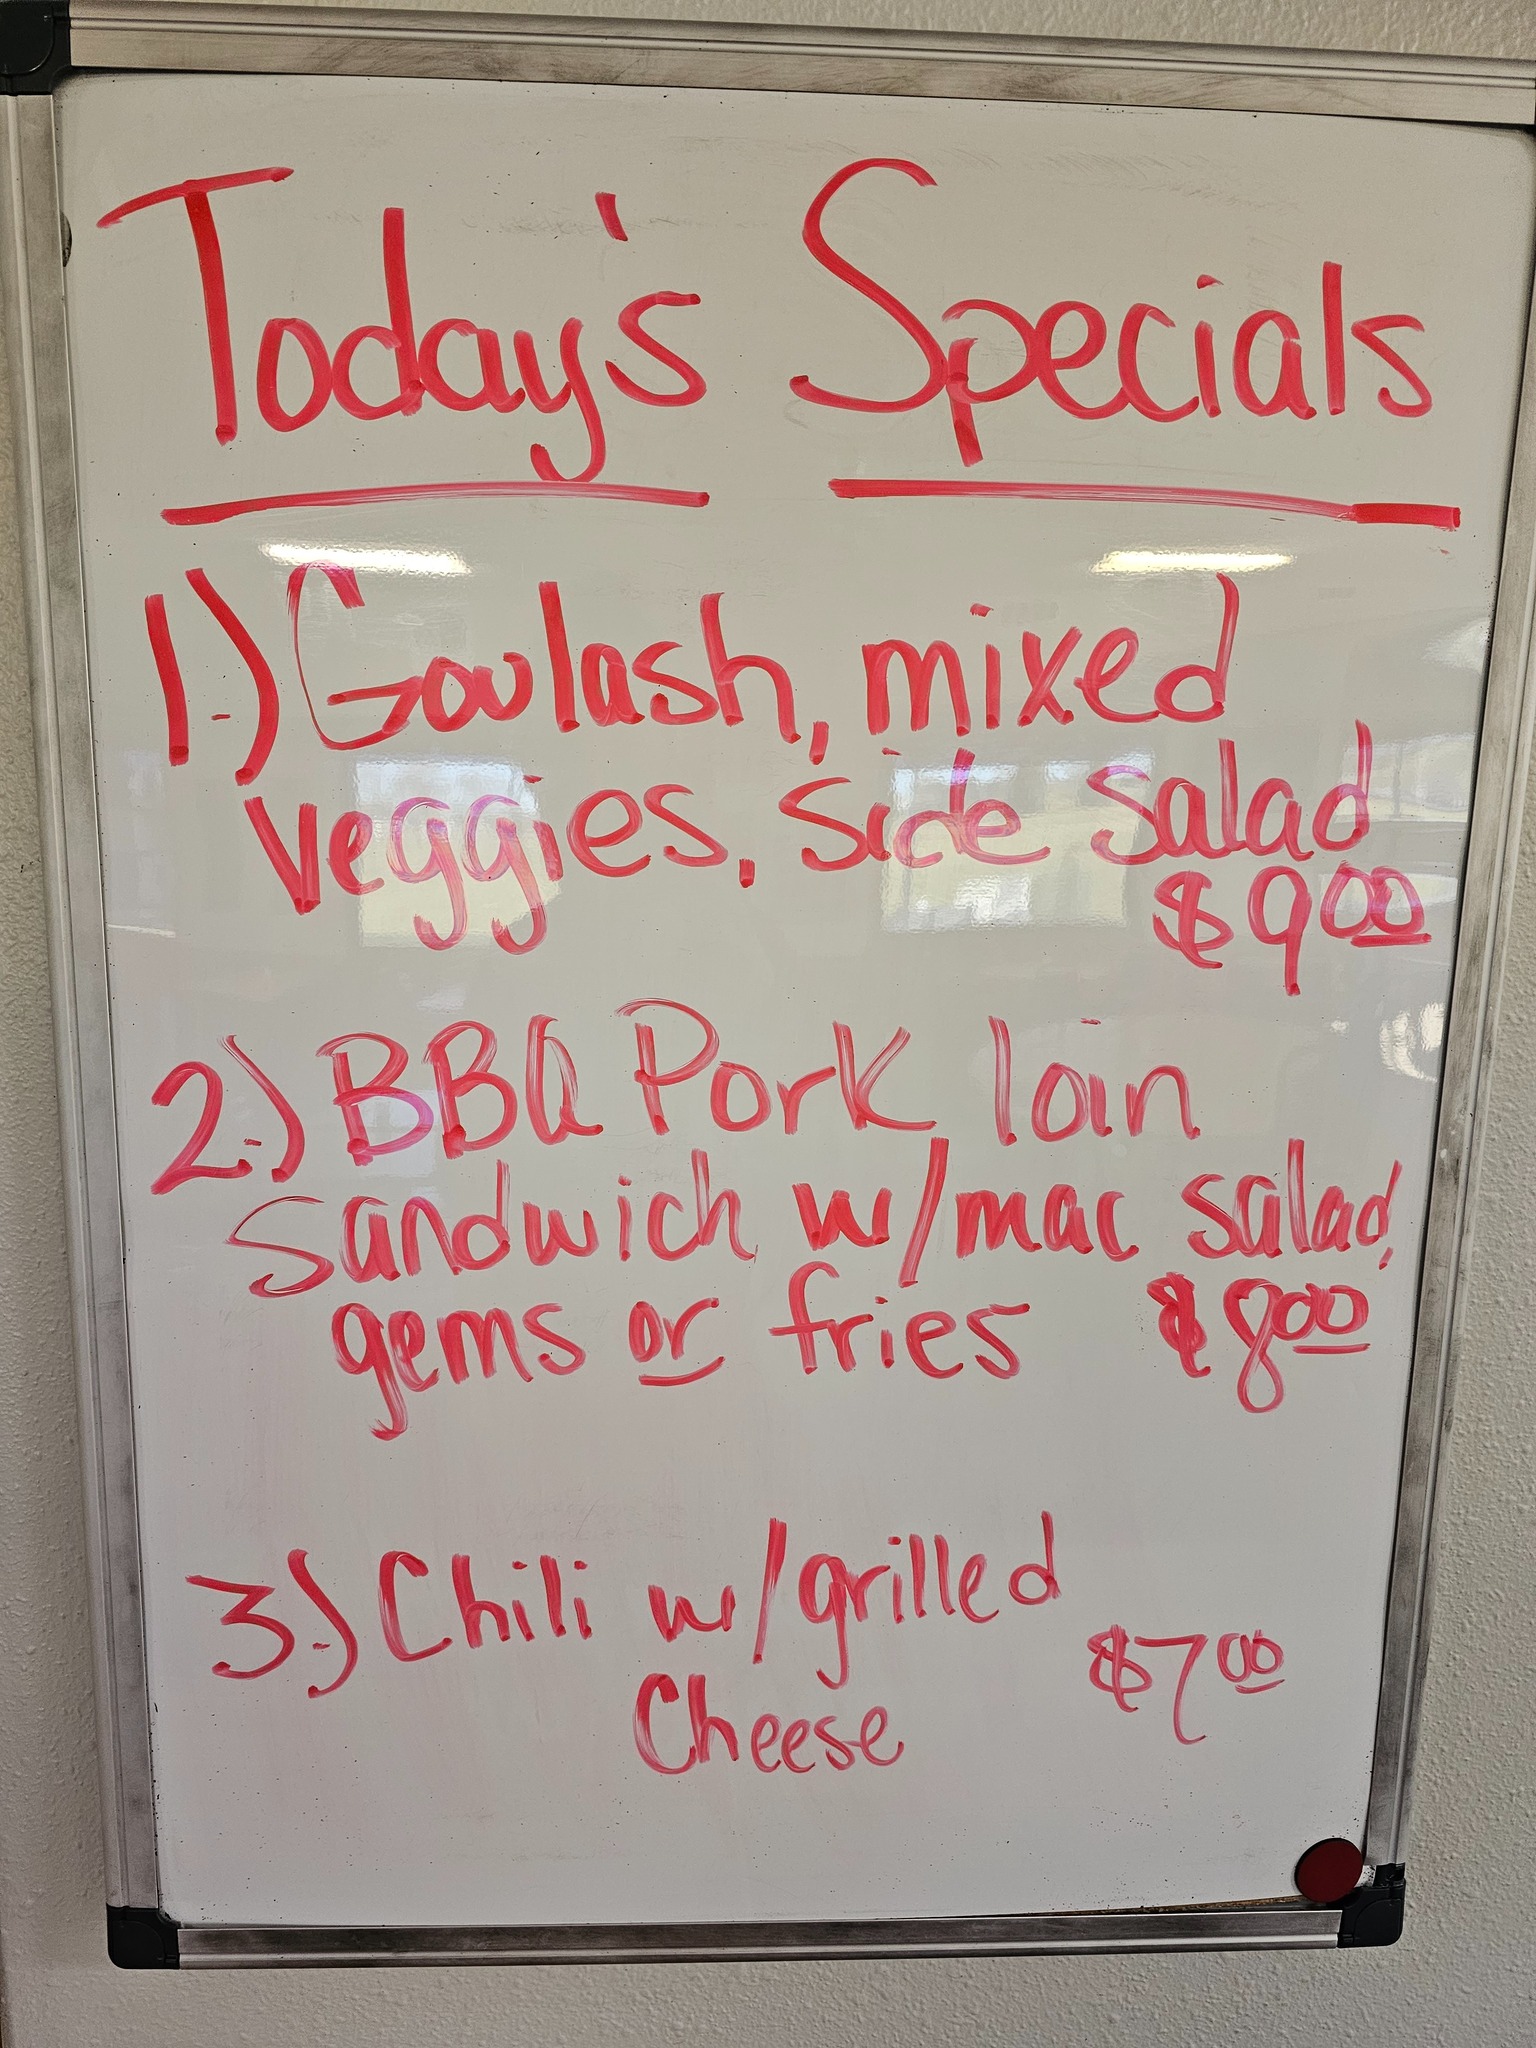 Today's Specials
1.) Goulash, mixed
veggies, side salad
$9.00
2.) BBQ Pork loin
sandwich w/mac salad,
gems or fries $8.00
3.) Chili w/grilled
Cheese $7.00